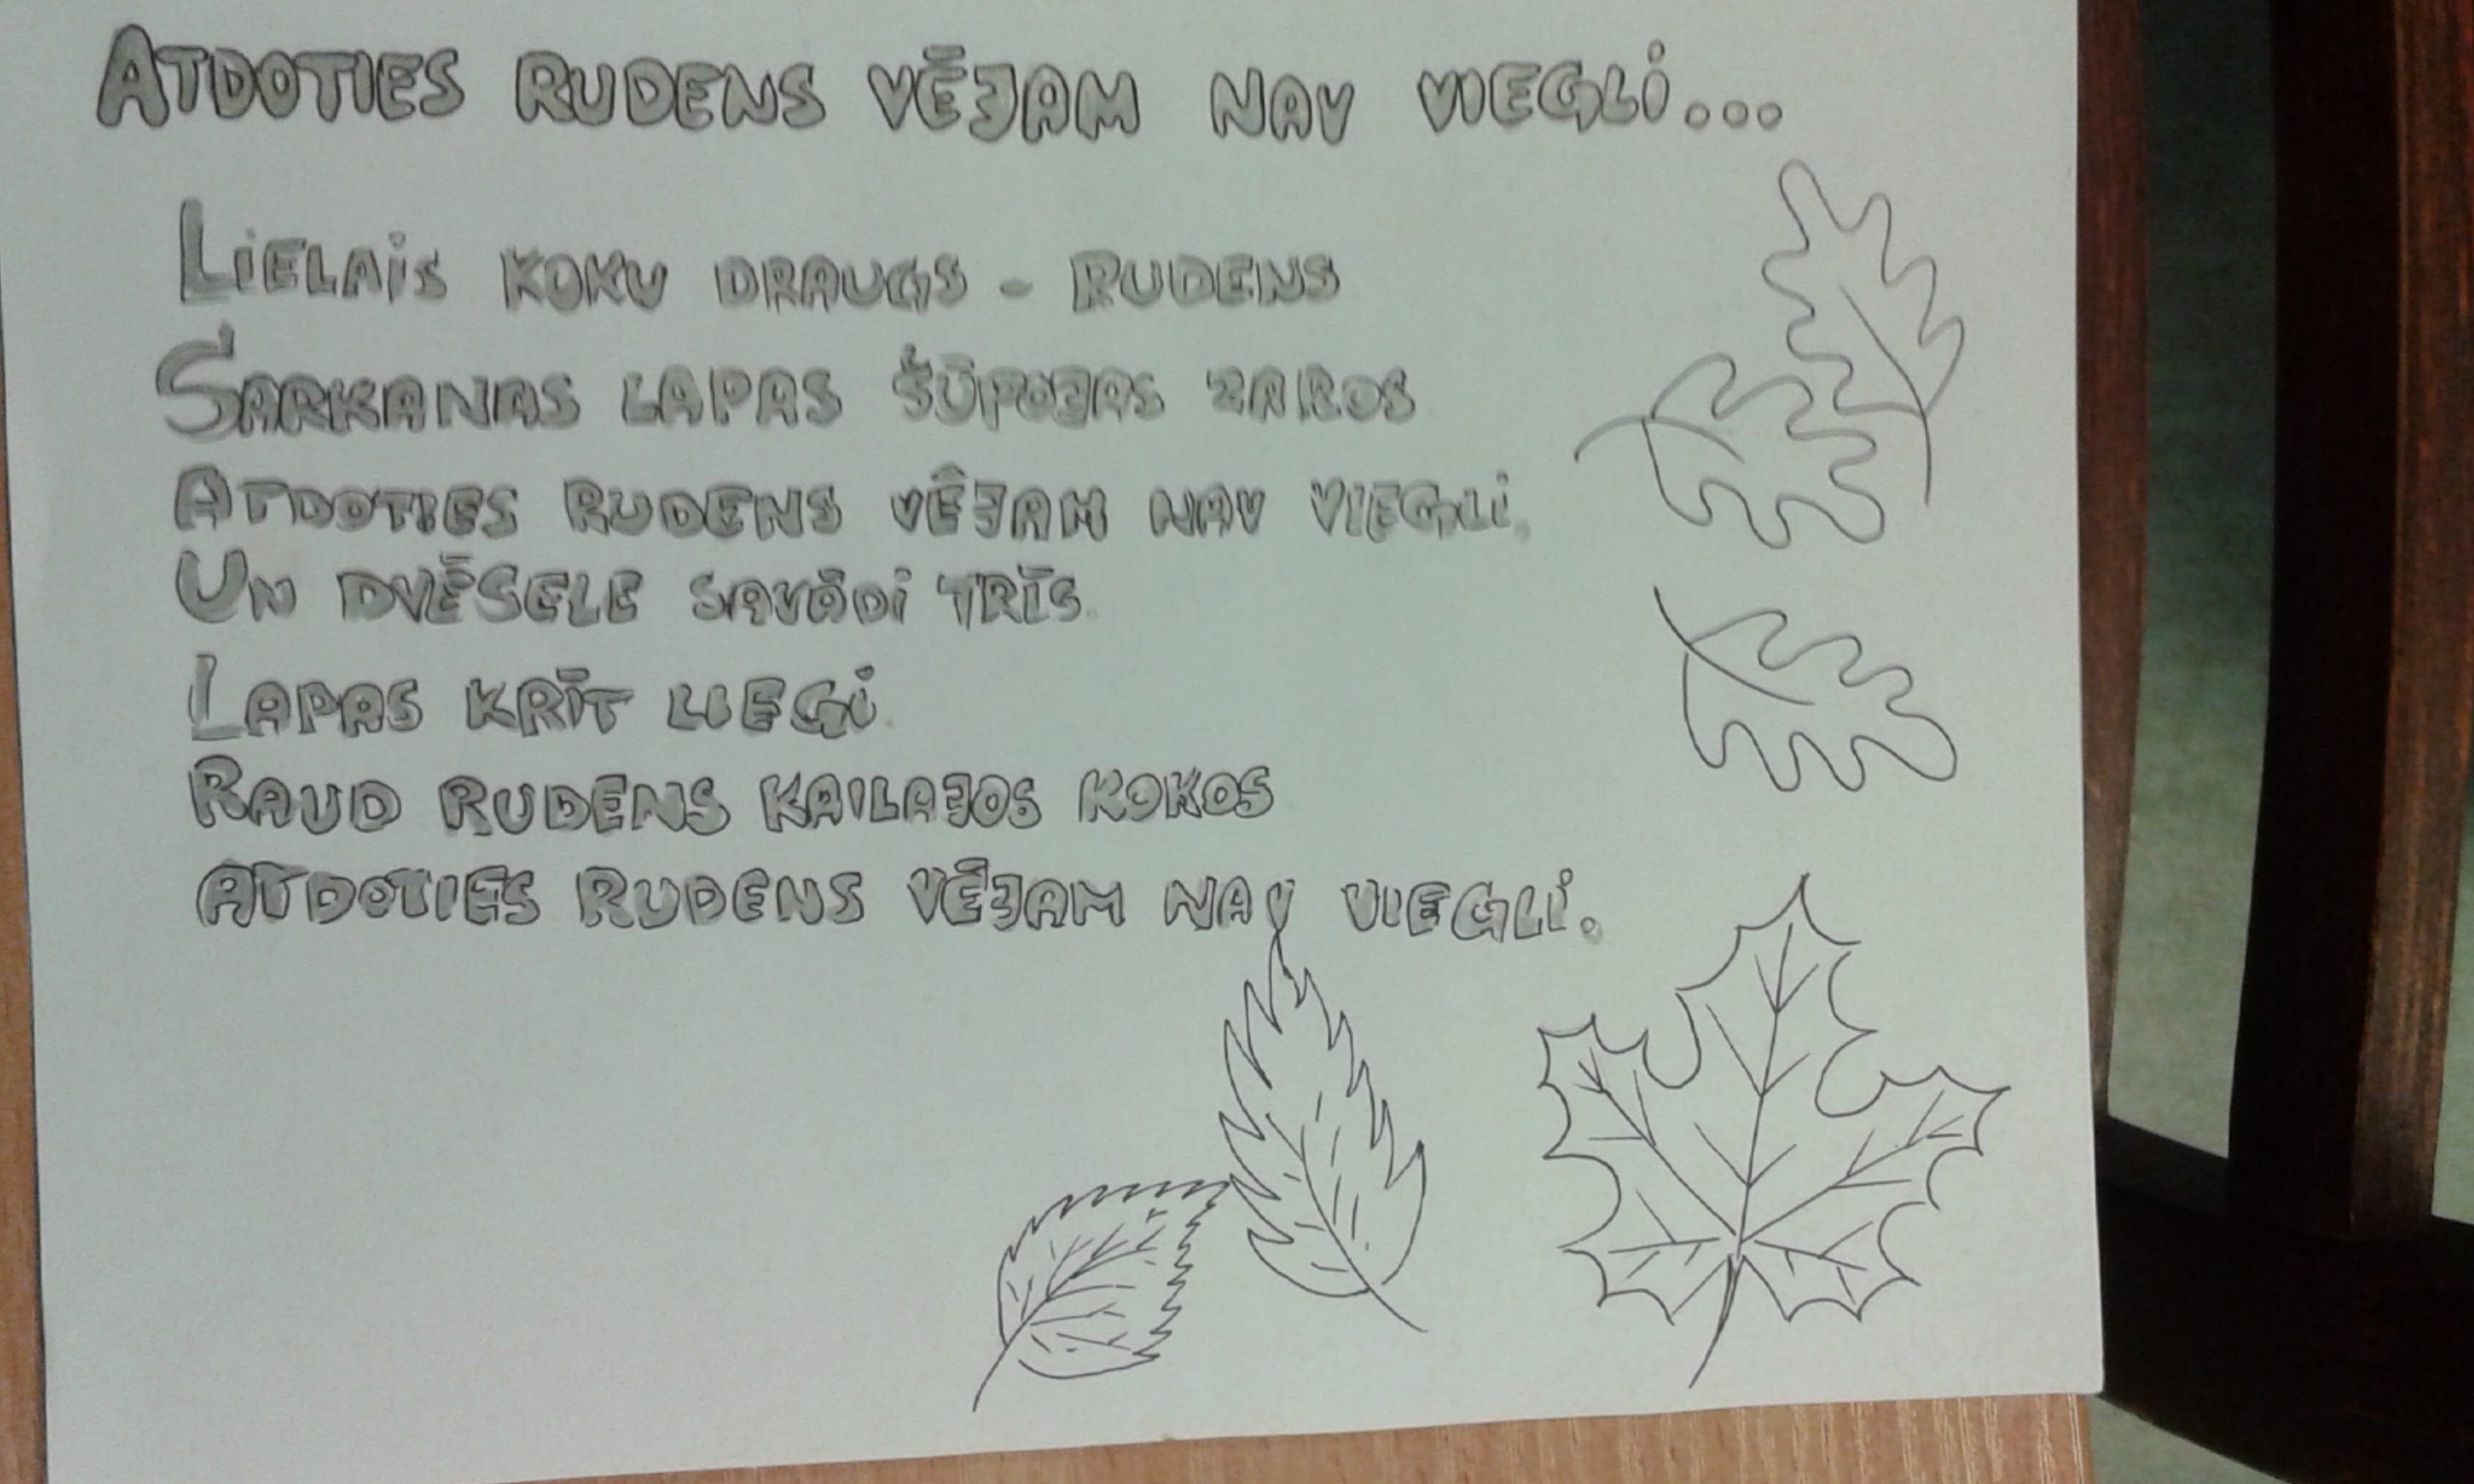 ATDOTIES RUDENS VĒJAM NAV VIEGLI...
LIELAIS KOKU DRAUGS - RUDENS
SARKANAS LAPAS ŠŪPOJAS ZAROS
ATDOTIES RUDENS VĒJAM NAV VIEGLI.
UN DVĒSELE SAVĀDI TRĪS.
LAPAS KRĪT LIEGI.
RAUD RUDENS KAILAJOS KOKOS
ATDOTIES RUDENS VĒJAM NAV VIEGLI.